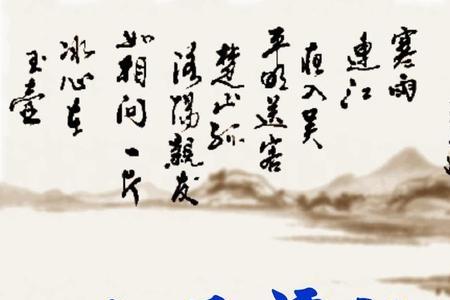 寒雨
连江
夜入吴
平明送客
楚山孤
洛阳亲友
如相问一片
冰心在
玉壶